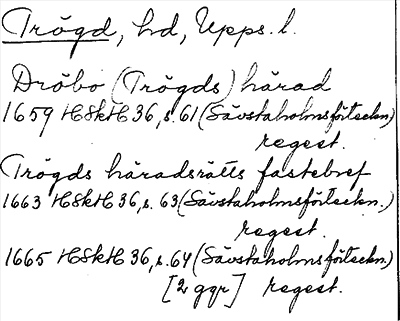 Trögd, hd, Upps. l.
Dröbo (Trögds) härad
1659 HSkH 36, s. 61 (Sävstaholmsförteckn.)
regest.
Trögds häradsrätts fastebref
1663 HSkH 36, s. 63 (Sävstaholmsförteckn.)
regest.
1665 HSkH 36, s. 64 (Sävstaholmsförteckn.)
[2 ggr] regest.